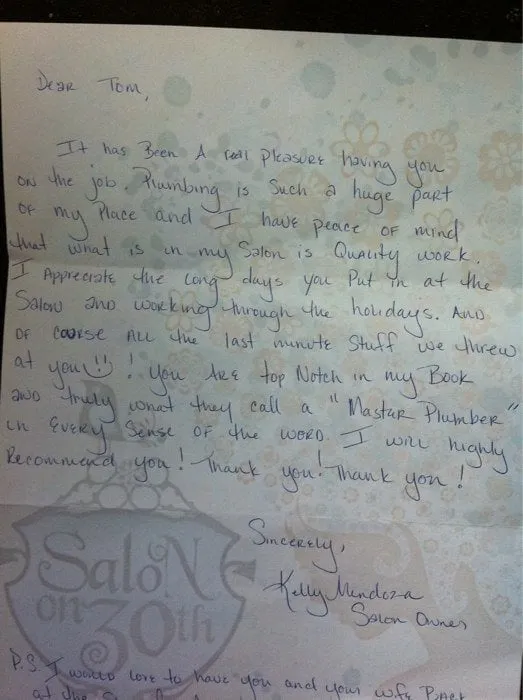 Dear Tom,
It has Been A real pleasure having you
on the job. Plumbing is such a huge part
of my Place and I have peace of mind
that what is in my Salon is Quality work.
I Appreciate the long days you Put in at the
Salon and working through the holidays. And
of course All the last minute Stuff we threw
at you! You Are top Notch in my Book
and truly what they call a "Mastar Plumber"
in Every Sense of the word. I will highly
Recommend you! Thank you! Thank you!
Sincerely,
Kelly Mendoza
Salon Owner
Salon
on
30th
P.S. I would love to have you and your wife Back
at the